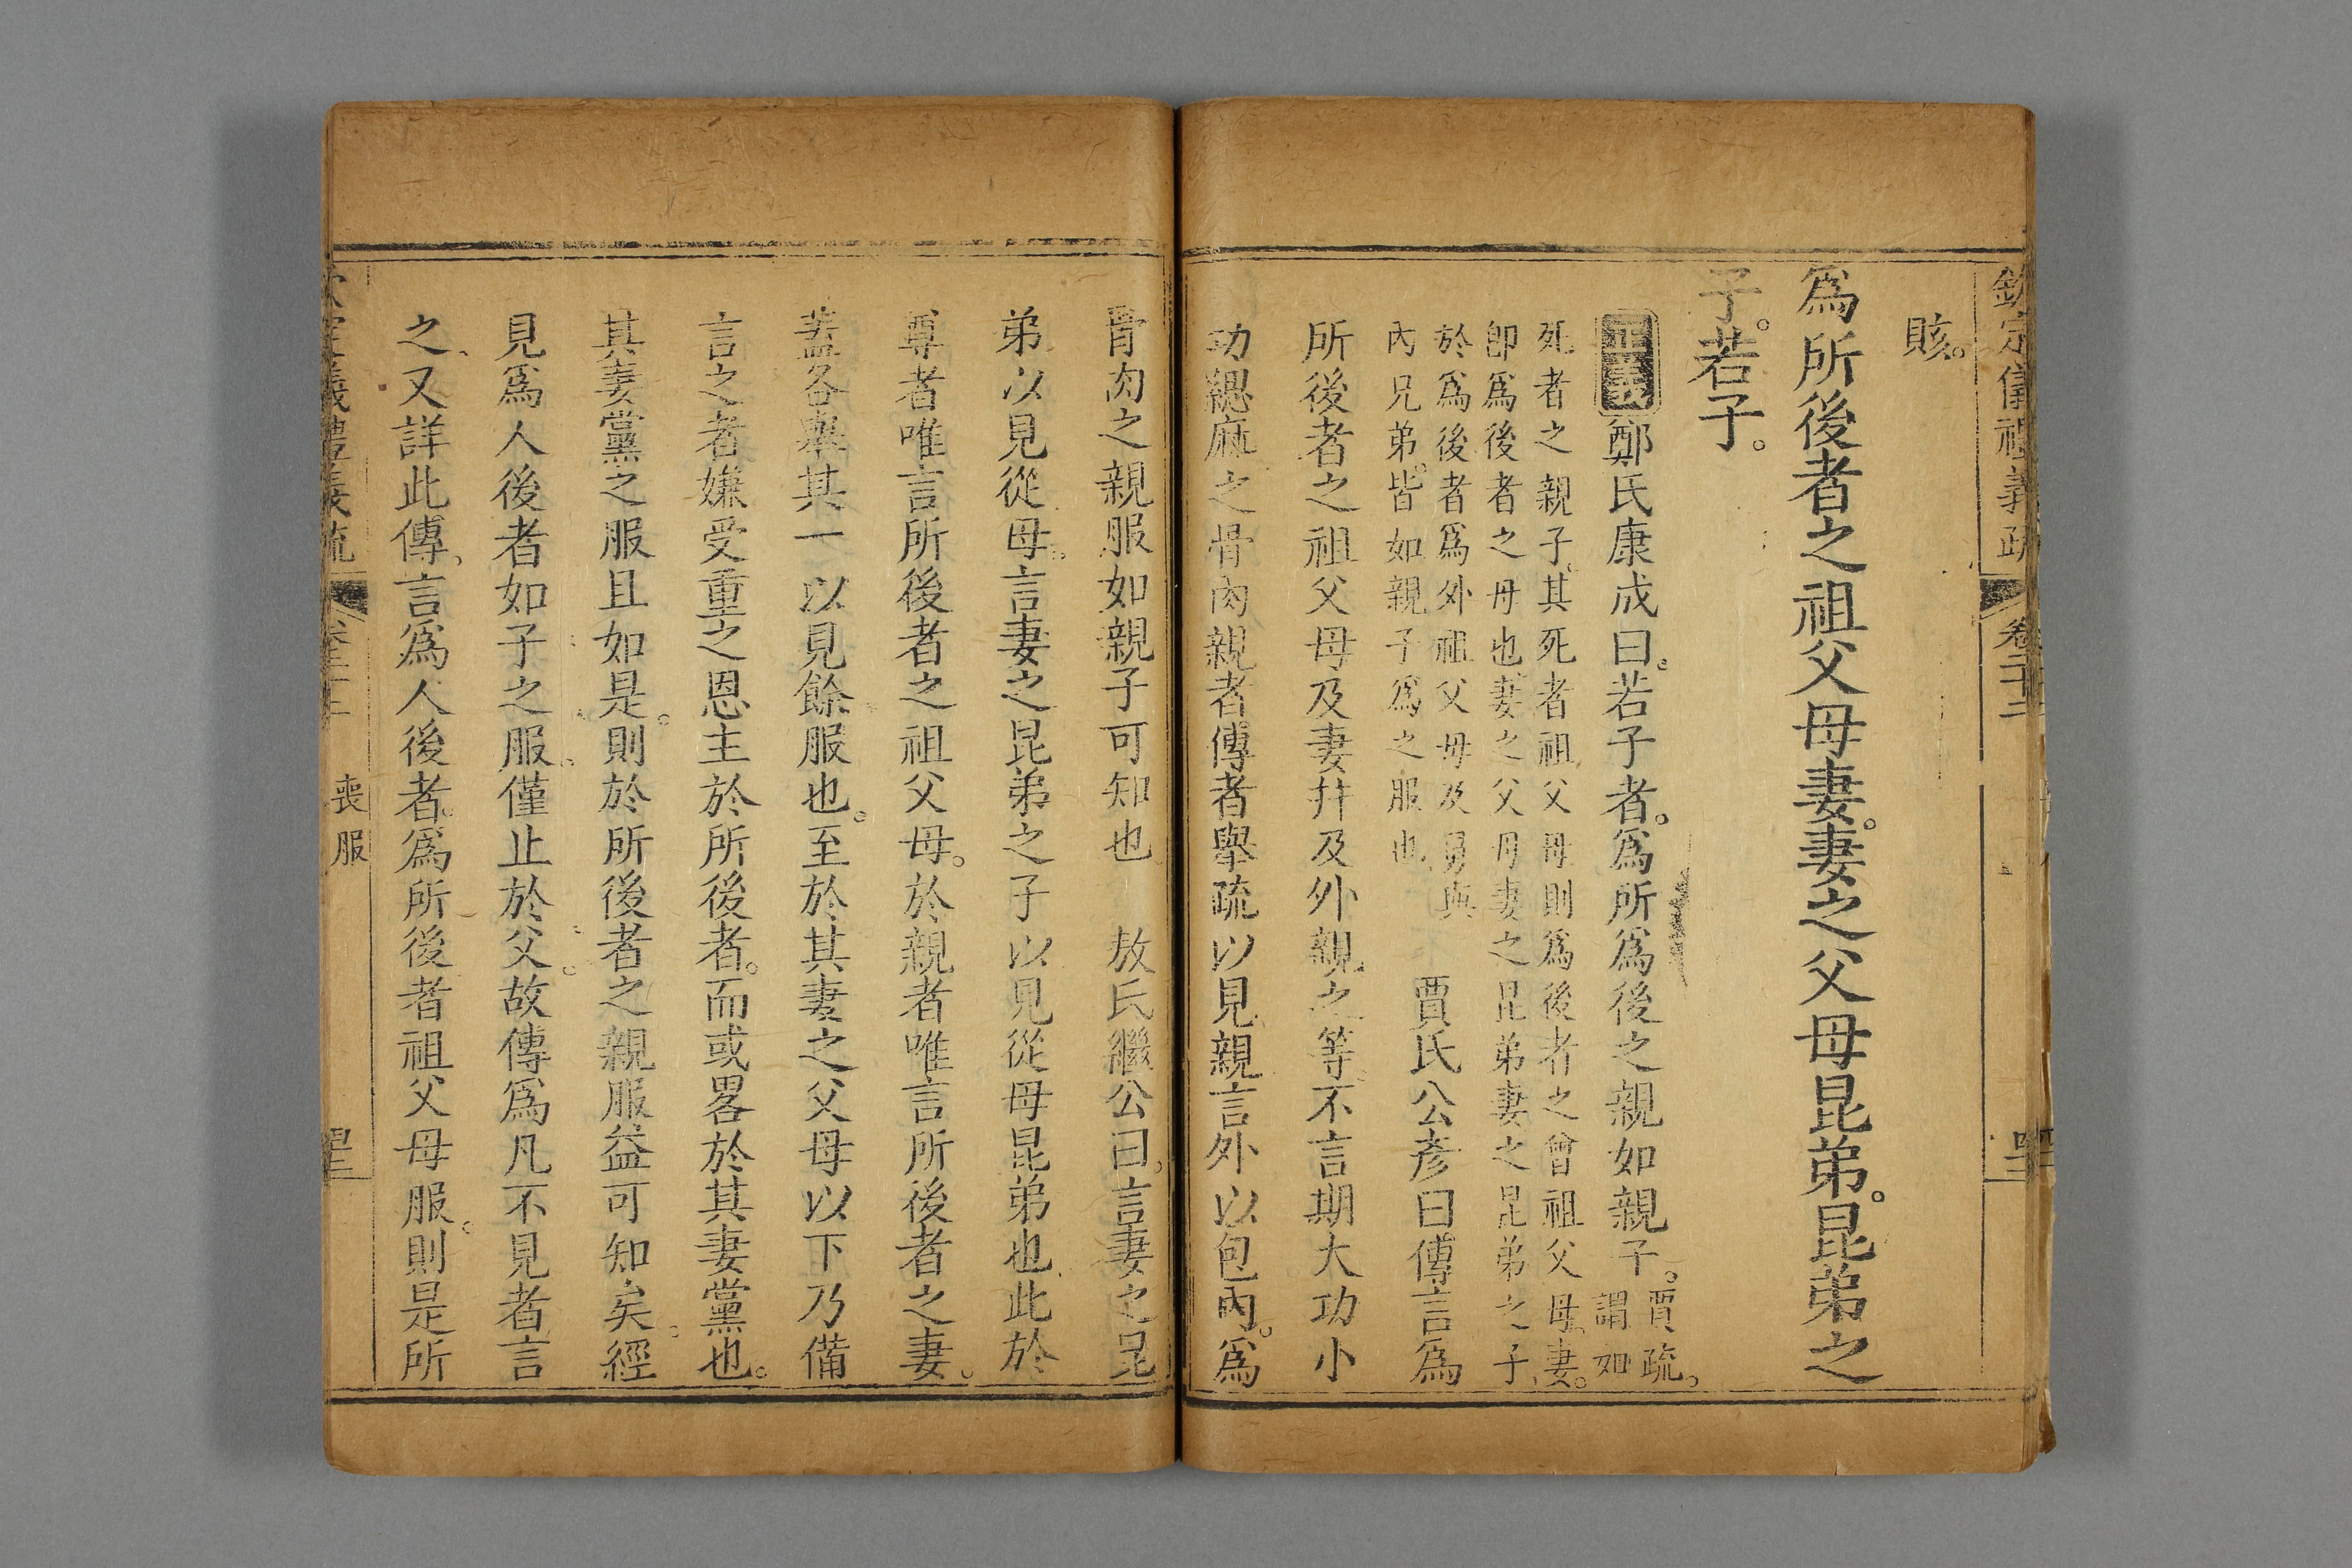 欽定儀禮義疏 卷二十二
賅。
爲所後者之祖父母妻。妻之父母昆弟。昆弟之
子。若子。
正義鄭氏康成曰。若子者。爲所爲後之親如親子。賈疏。謂如
死者之親子。其死者祖父母則爲後者之曾祖父母。妻。
卽爲後者之母也。妻之父母妻之昆弟妻之昆弟之子。
於爲後者爲外祖父母及舅與
內兄弟。皆如親子爲之服也。
賈氏公彥曰傳言爲
所後者之祖父母及妻幷及外親之等不言期大功小
功緦麻之骨肉親者傳者舉疏以見親言外以包內。爲
骨肉之親服如親子可知也 敖氏繼公曰。言妻之昆
弟以見從母。言妻之昆弟之子以見從母昆弟也此於
尊者唯言所後者之祖父母。於親者唯言所後者之妻。
蓋各舉其一以見餘服也。至於其妻之父母以下乃備
言之者嫌受重之恩主於所後者。而或畧於其妻黨也。
其妻黨之服且如是。則於所後者之親服益可知矣。經
見爲人後者如子之服。僅止於父。故傳爲凡不見者言
之、又詳此傳、言爲人後者。爲所後者祖父母服。則是所
喪服